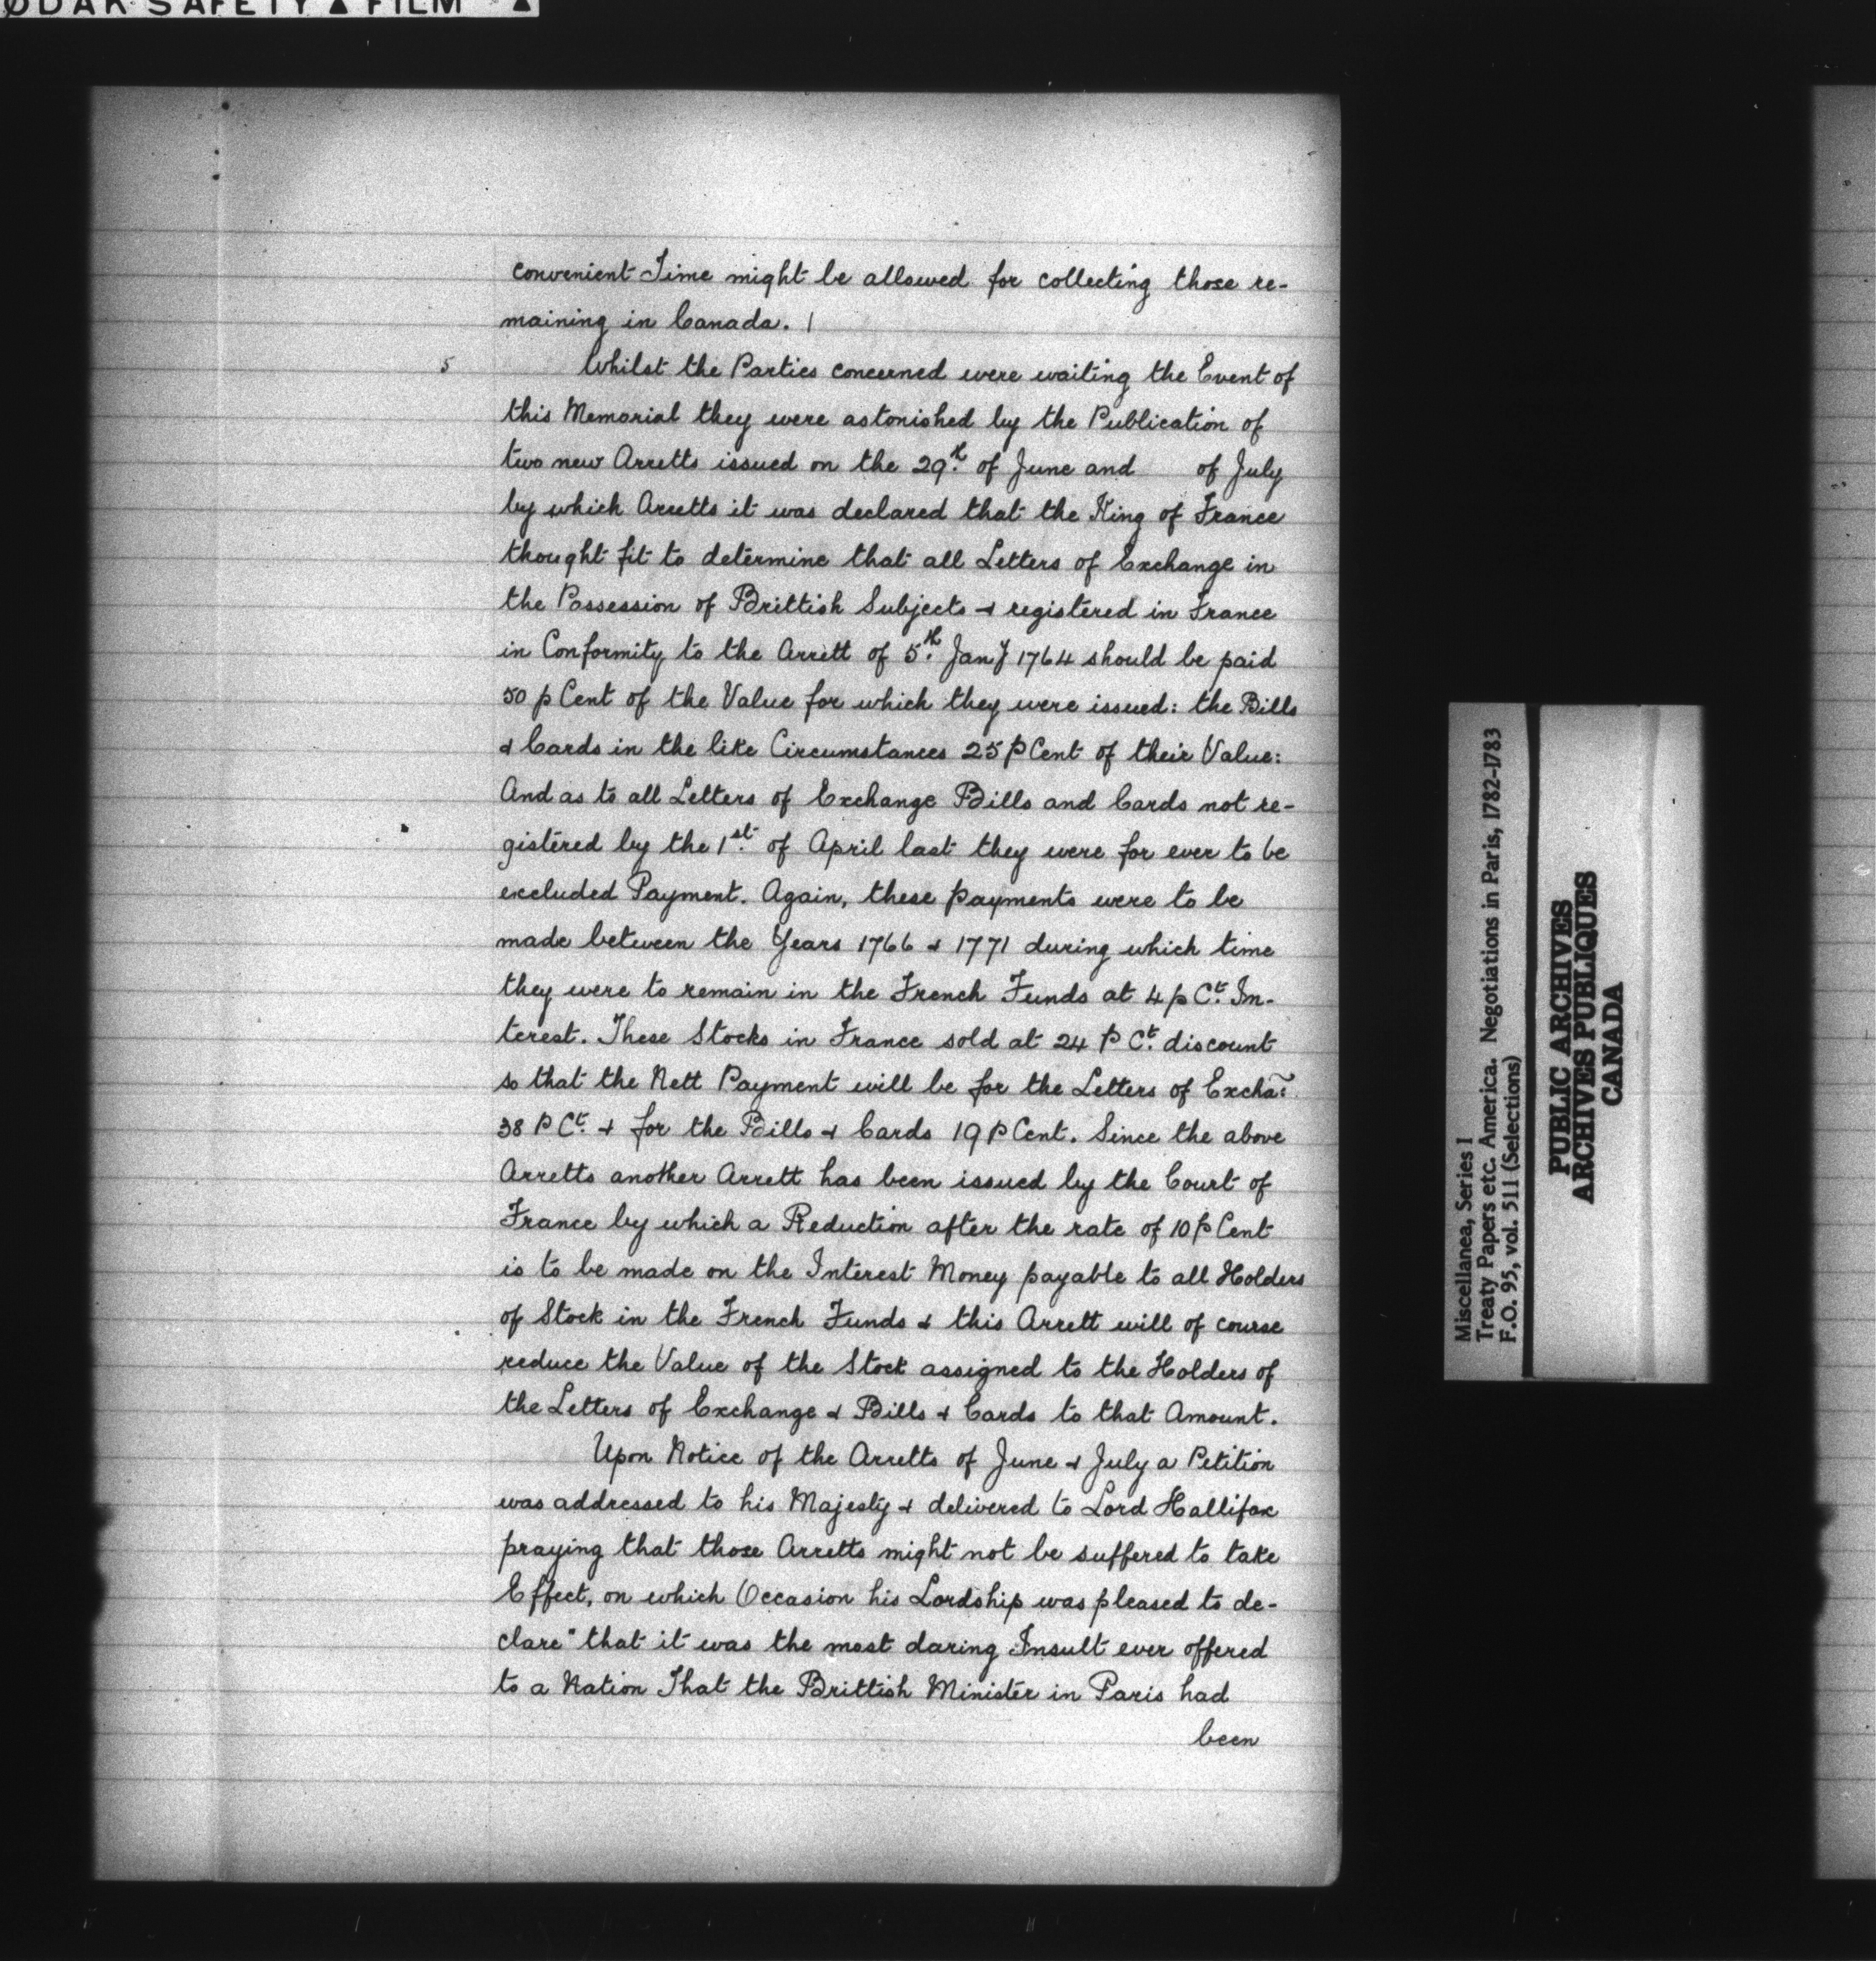 ØDAK SAFETY ▲ FILM ▲
convenient Time might be allowed for collecting those re-
maining in Canada. |
5 Whilst the Parties concerned were waiting the Event of
this Memorial they were astonished by the Publication of
two new Arretts issued on the 29th of June and of July
by which Arretts it was declared that the King of France
thought fit to determine that all Letters of Exchange in
the Possession of Brittish Subjects & registered in France
in Conformity to the Arrett of 5th Jany 1764 should be paid
50 p Cent of the Value for which they were issued: the Bills
& Cards in the like Circumstances 25 p Cent of their Value:
And as to all Letters of Exchange Bills and Cards not re-
gistered by the 1st of April last they were for ever to be
excluded Payment. Again, these payments were to be
made between the Years 1766 & 1771 during which time
they were to remain in the French Funds at 4 p Ct. In-
terest. These Stocks in France sold at 24 P Ct. discount
so that the Nett Payment will be for the Letters of Excha:
38 P Ct. & for the Bills & Cards 19 P Cent. Since the above
Arretts another Arrett has been issued by the Court of
France by which a Reduction after the rate of 10 p Cent
is to be made on the Interest Money payable to all Holders
of Stock in the French Funds & this Arrett will of course
reduce the Value of the Stock assigned to the Holders of
the Letters of Exchange & Bills & Cards to that Amount.
Upon Notice of the Arretts of June & July a Petition
was addressed to his Majesty & delivered to Lord Hallifax
praying that those Arretts might not be suffered to take
Effect, on which Occasion his Lordship was pleased to de-
clare "that it was the most daring Insult ever offered
to a Nation That the Brittish Minister in Paris had
been
Miscellanea, Series I
Treaty Papers etc. America. Negotiations in Paris, 1782-1783
F.O. 95, vol. 511 (Selections)
PUBLIC ARCHIVES
ARCHIVES PUBLIQUES
CANADA